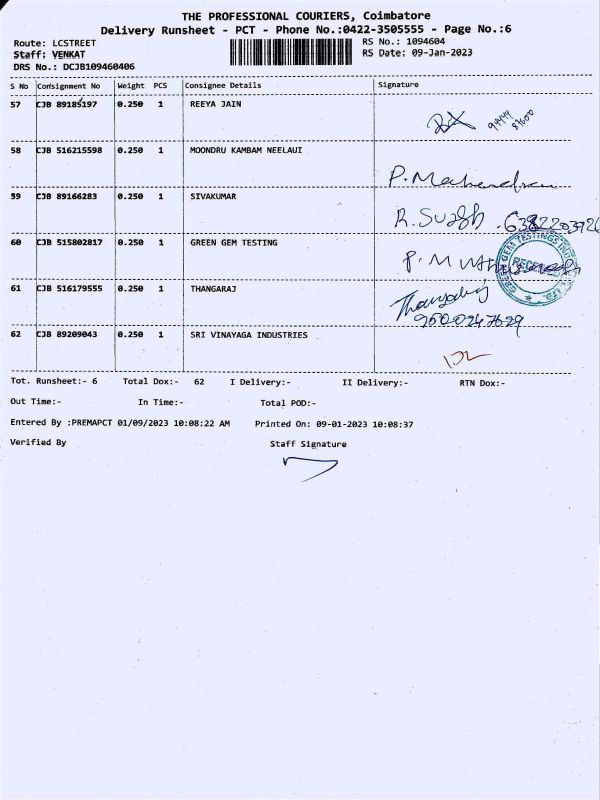 THE PROFESSIONAL COURIERS, Coimbatore
Delivery Runsheet - PCT - Phone No.:0422-3505555 - Page No.:6
Route: LCSTREET
RS No.: 1094604
Staff: VENKAT
RS Date: 09-Jan-2023
DRS No.: DCJB109460406
S No Consignment No Weight PCS Consignee Details Signature
57 CJB 89185197 0.250 1 REEYA JAIN
58 CJB 516215598 0.250 1 MOONDRU KAMBAM NEELAUI
P. Mahendran
59 CJB 89166283 0.250 1 SIVAKUMAR
R. 
60 CJB 515802817 0.250 1 GREEN GEM TESTING
P. M
RECEIVED
61 CJB 516179555 0.250 1 THANGARAJ
Thangaraj
9500247629
62 CJB 89209043 0.250 1 SRI VINAYAGA INDUSTRIES
Tot. Runsheet:- 6 Total Dox:- 62 I Delivery:- II Delivery:- RTN Dox:-
Out Time:- In Time:- Total POD:-
Entered By :PREMAPCT 01/09/2023 10:08:22 AM Printed On: 09-01-2023 10:08:37
Verified By Staff Signature